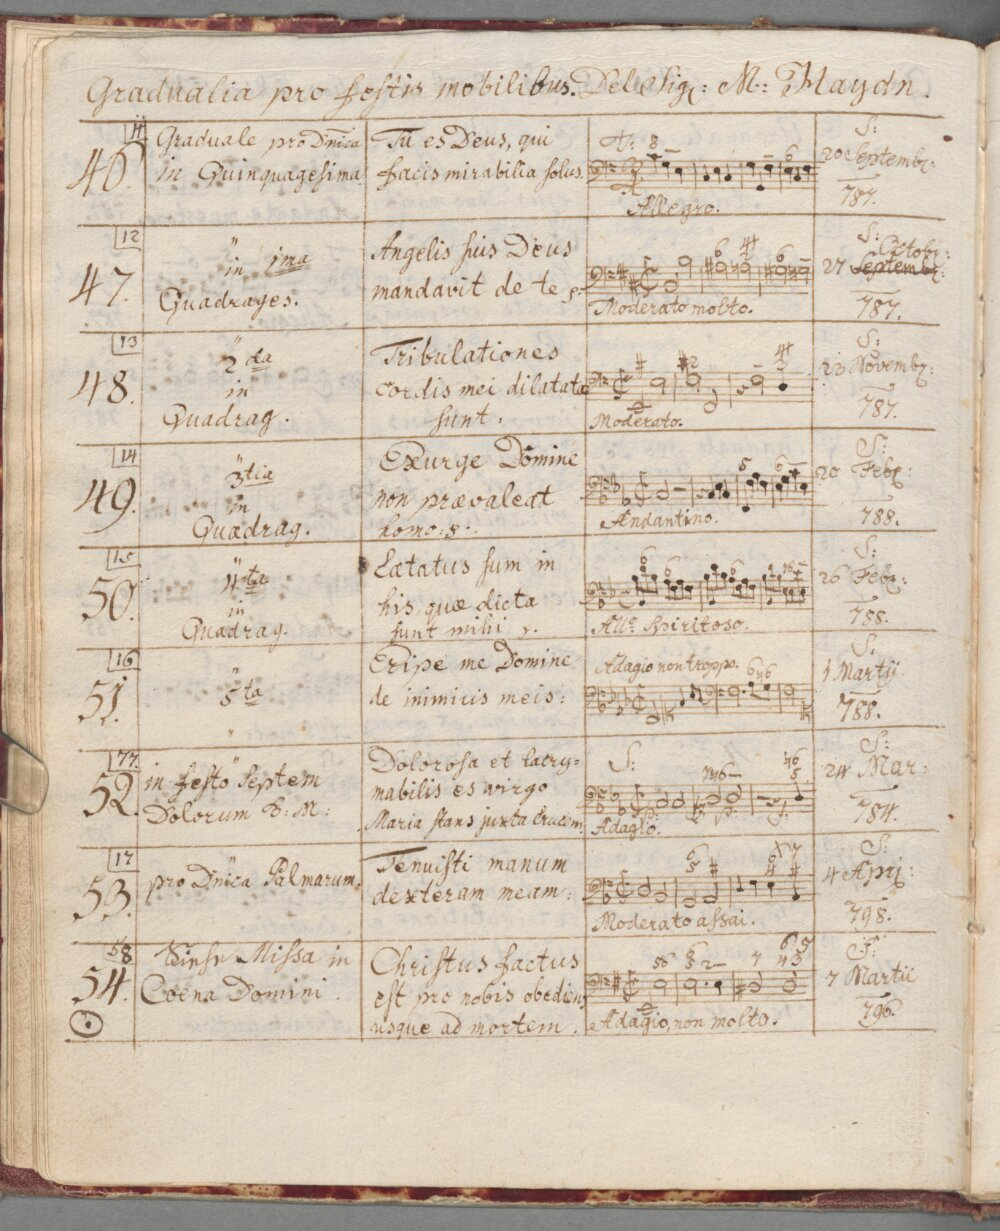 Gradualia pro festis mobilibus. Del Sig: M: Haydn.
11
46.
Graduale pro Dnica
in Quinquagesima
Tu es Deus, qui
facis mirabilia solus.
Allegro.
S:
20 Septemb:
787.
12
47.
" in 1ma
Quadrages.
Angelis suis Deus
mandavit de te
Moderato molto.
S:
Octob:
27 Septemb:
787.
13
48.
"
2da
in
Quadrag.
Tribulationes
cordis mei dilatatæ
sunt.
Moderato.
S:
23 Novemb:
787.
14
49.
"
3tia
in
Quadrag.
Exurge Domine
non prævaleat
homo:
Andantino.
S:
20 Feb:
788.
15
50.
"
4ta
in
Quadrag.
Lætatus sum in
his quæ dicta
sunt mihi
Allo. Spiritoso.
S:
26 Feb:
788.
16
51.
"
5ta
"
Eripe me Domine
de inimicis meis:
Adagio non troppo.
S:
1 Martij
788.
77
52.
in festo Septem
Dolorum B: M:
Dolorosa et lacry=
mabilis es virgo
Maria stans juxta Crucem:
S:
Adagio.
S:
24 Mar:
784.
17
53.
pro Dnica Palmarum.
Tenuisti manum
dexteram meam:
Moderato assai.
S:
4 Apr:
798.
58
54.
Missa in
Coena Domini.
Christus factus
est pro nobis obediens
usque ad mortem.
Adagio, non molto.
S:
7 Martii
796.